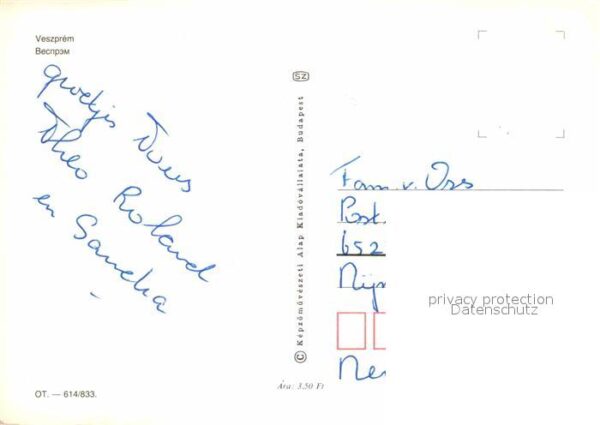 Veszprém
Веспрэм
groetjes Dous
Theo Roland
en Sandra
SZ
© Képzőművészeti Alap Kiadóvállalata, Budapest
Fam. v. Oss
Post.
652
Nijm
Ne
privacy protection
Datenschutz
Ára: 3.50 Ft
OT. — 614/833.